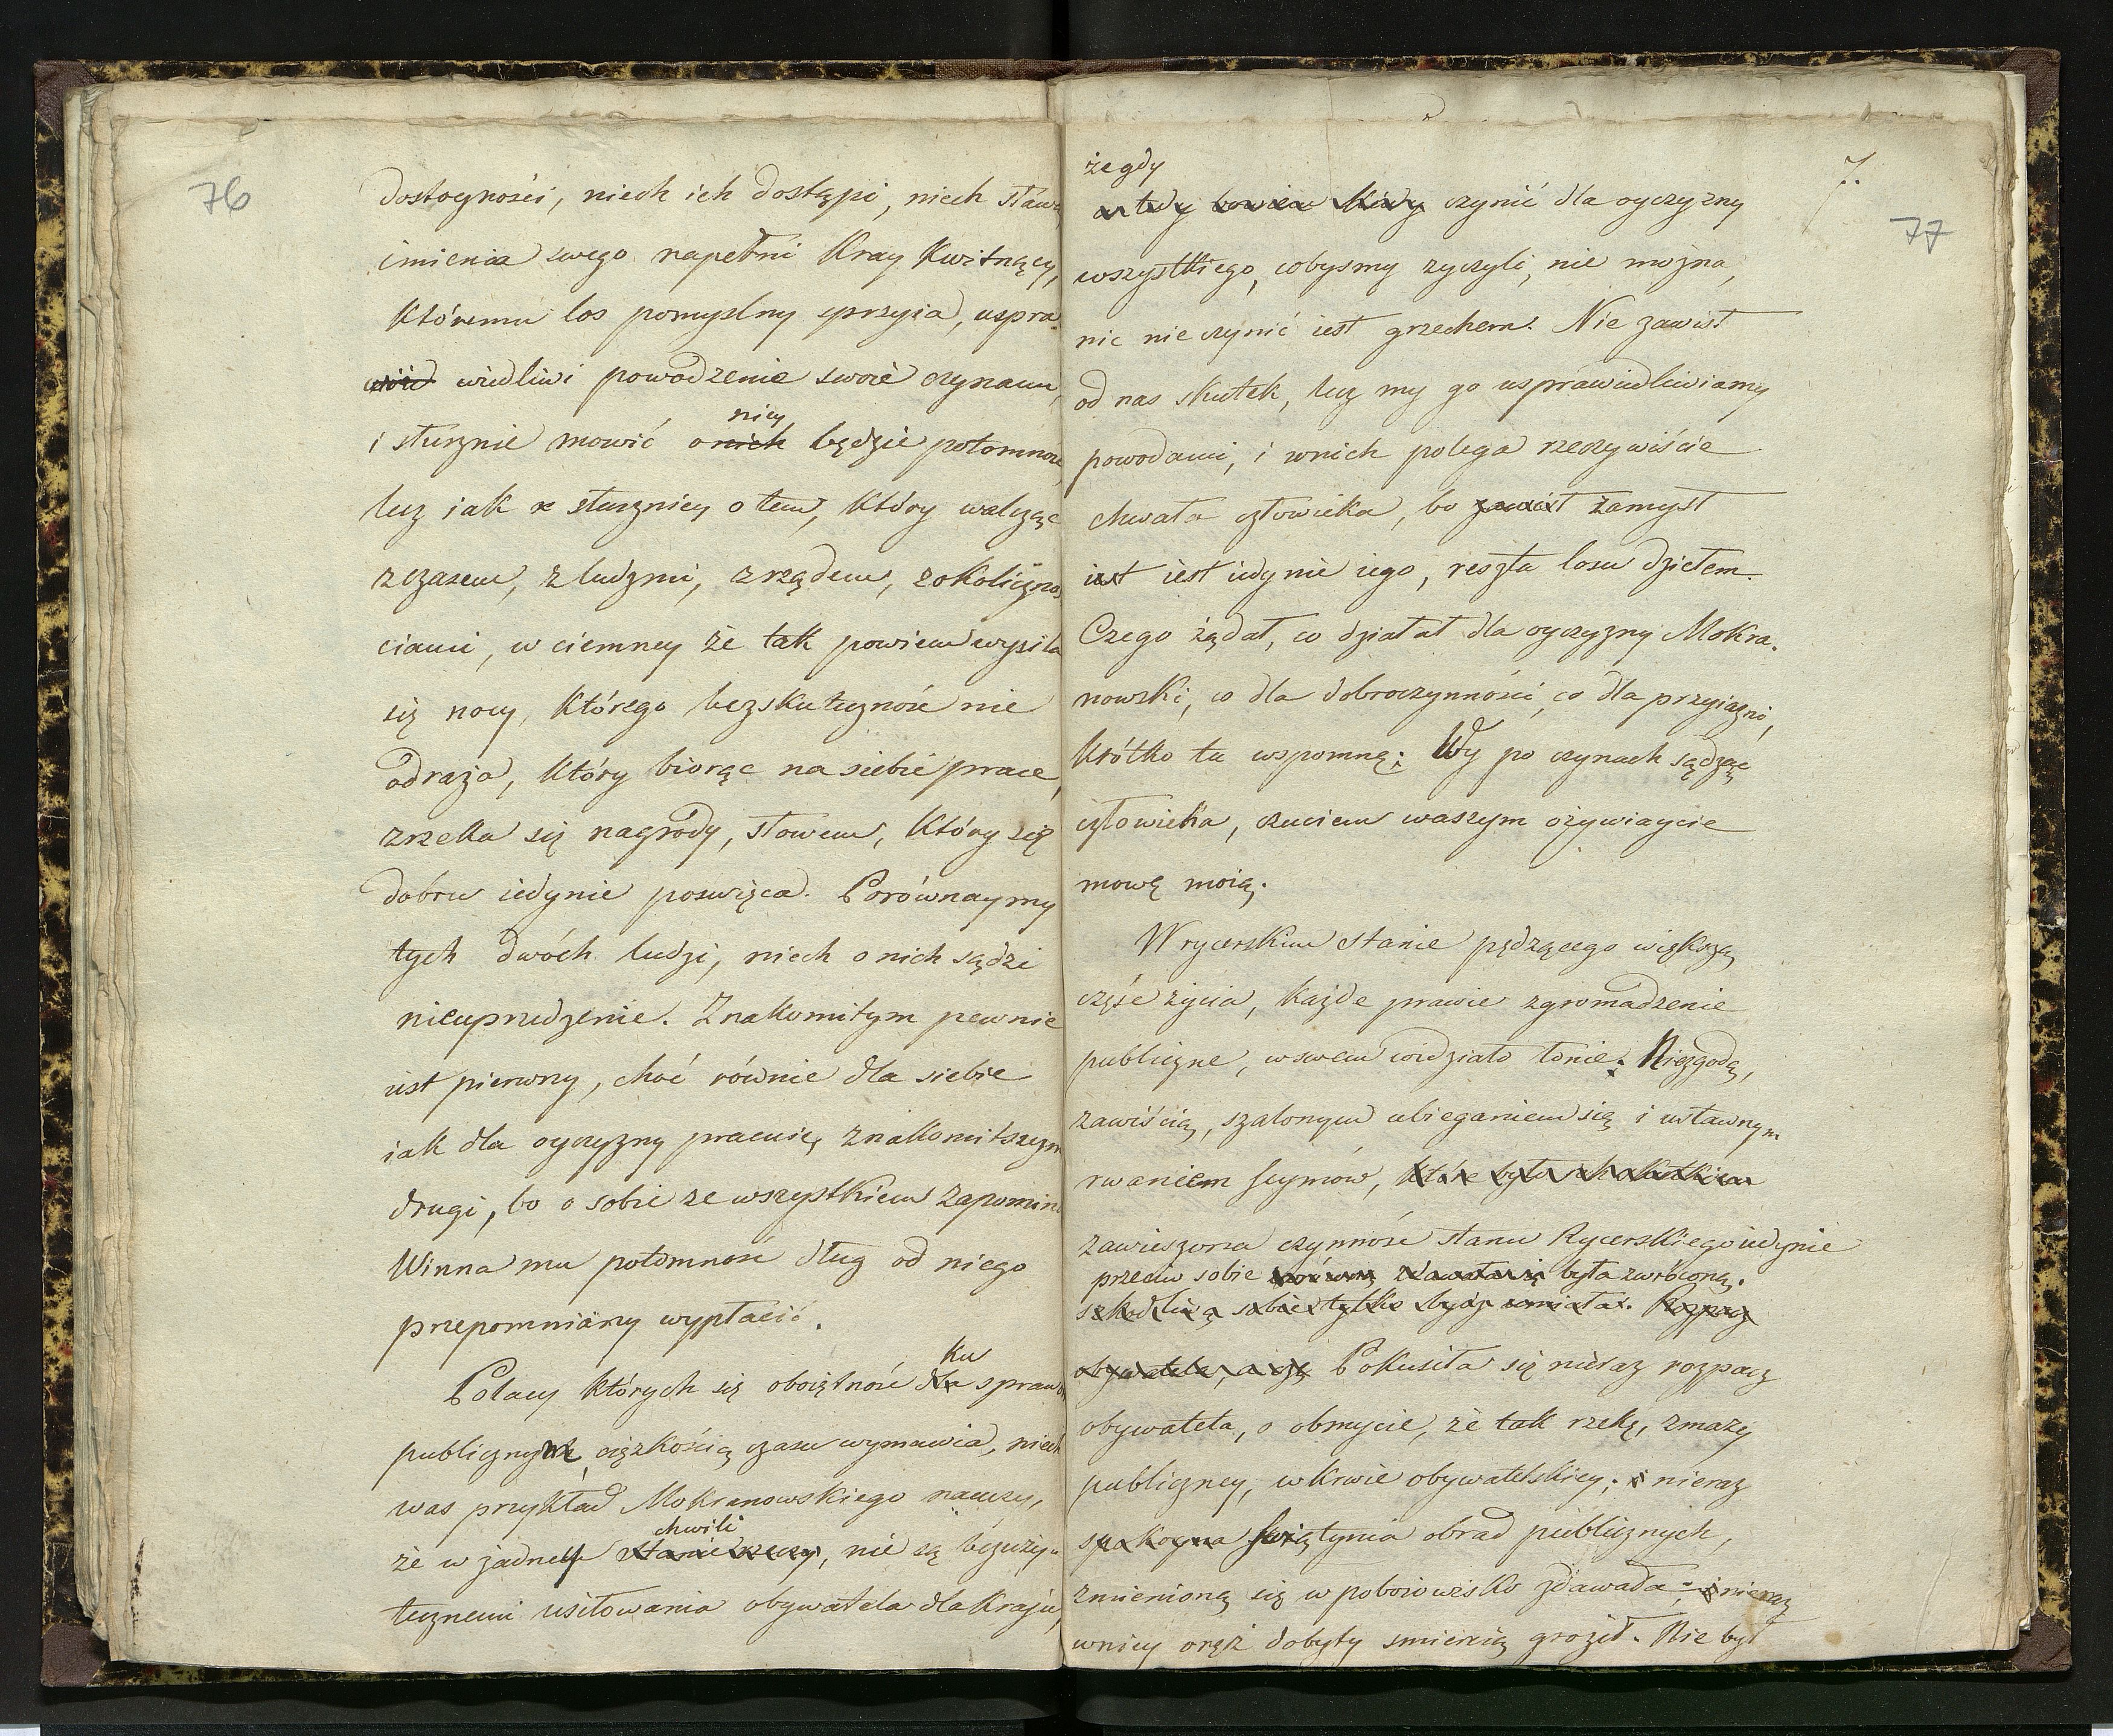 76
dostoyności, niech ich dostąpi, niech sławą
imienia swego napełni Kray Kwitnący,
któremu los pomyslny sprzyia, uspra-
wiedliwi powodzenie swoie czynami,
nicy
i słusznie mowić o nich będzie potomność
lecz iak słuszniey o tem, który walcząc
z czasem, z ludzmi, z rządem, z okolicznoś
ciami, w ciemney że tak powiem wysila
się nocy, którego bezskuteczność nie
odraża, który biorąc na siebie prace,
zrzeka się nagrody, słowem, który się
dobru iedynie poswięca. Porównaymy
tych dwóch ludzi, niech o nich sądzi
nieuprzedzenie. Znakomitym pewnie
iest pierwszy, choć równie dla siebie
iak dla oyczyzny pracuie, znakomitszym
drugi, bo o sobie ze wszystkiem zapomin
Winna mu potomność dług od niego
przepomniány wypłacić.
ku
Polacy których się oboiętność dla spraw
publicznych ciężkością czasu wymawia, niech
was przykład Mokranowskiego nauczy,
chwili
że w żadney stanie rzeczy, nie są bezuży-
tecznemi usiłowania obywatela dla kraju,
7.
77
że gdy
a tedy bowiem kiedy czynić dla oyczyzny
wszystkiego, cobysmy zyczyli, nie można,
nic nie czynić iest grzechem. Nie zawisł
od nas skutek, lecz my go usprawiedliwiamy
powodami, i w nich polega rzeczywiście
chwała człowieka, bo zawisł zamysł
iest iest iedynie iego, reszta losu dziełem.
Czego żądał, co działał dla oyczyzny Mokra-
nowski, co dla dobroczynności, co dla przyiazni,
krótko tu wspomnę; Wy po czynach sądząc
człowieka, czuciem waszym ożywiaycie
mowę moię.
W rycerskim stanie pędzącego większą
część życia, każde prawie zgromadzenie
publiczne, w swem widziało łonie; Niezgodą,
zawiścią, szalonym ubieganiem się i ustawnym
rwaniem seymów, które były ich skutkiem
zawieszona czynność stanu Rycerskiego iedynie
przeciw sobie zdawała się była zwróconą.
szkodliwą sobie tylko bydź umiała. Rozpacz
obywatela, a Pokusiła się nieraz rozpacz
obywatela, o obmycie, że tak rzekę, zmazy
publiczney, w krwie obywatelskiey; i nieraz
spokoyna swiątynia obrad publicznych,
zmienioną się w poboiowisko zdawała; i nieraz
w niey oręż dobyty smiercią groził. Nie był